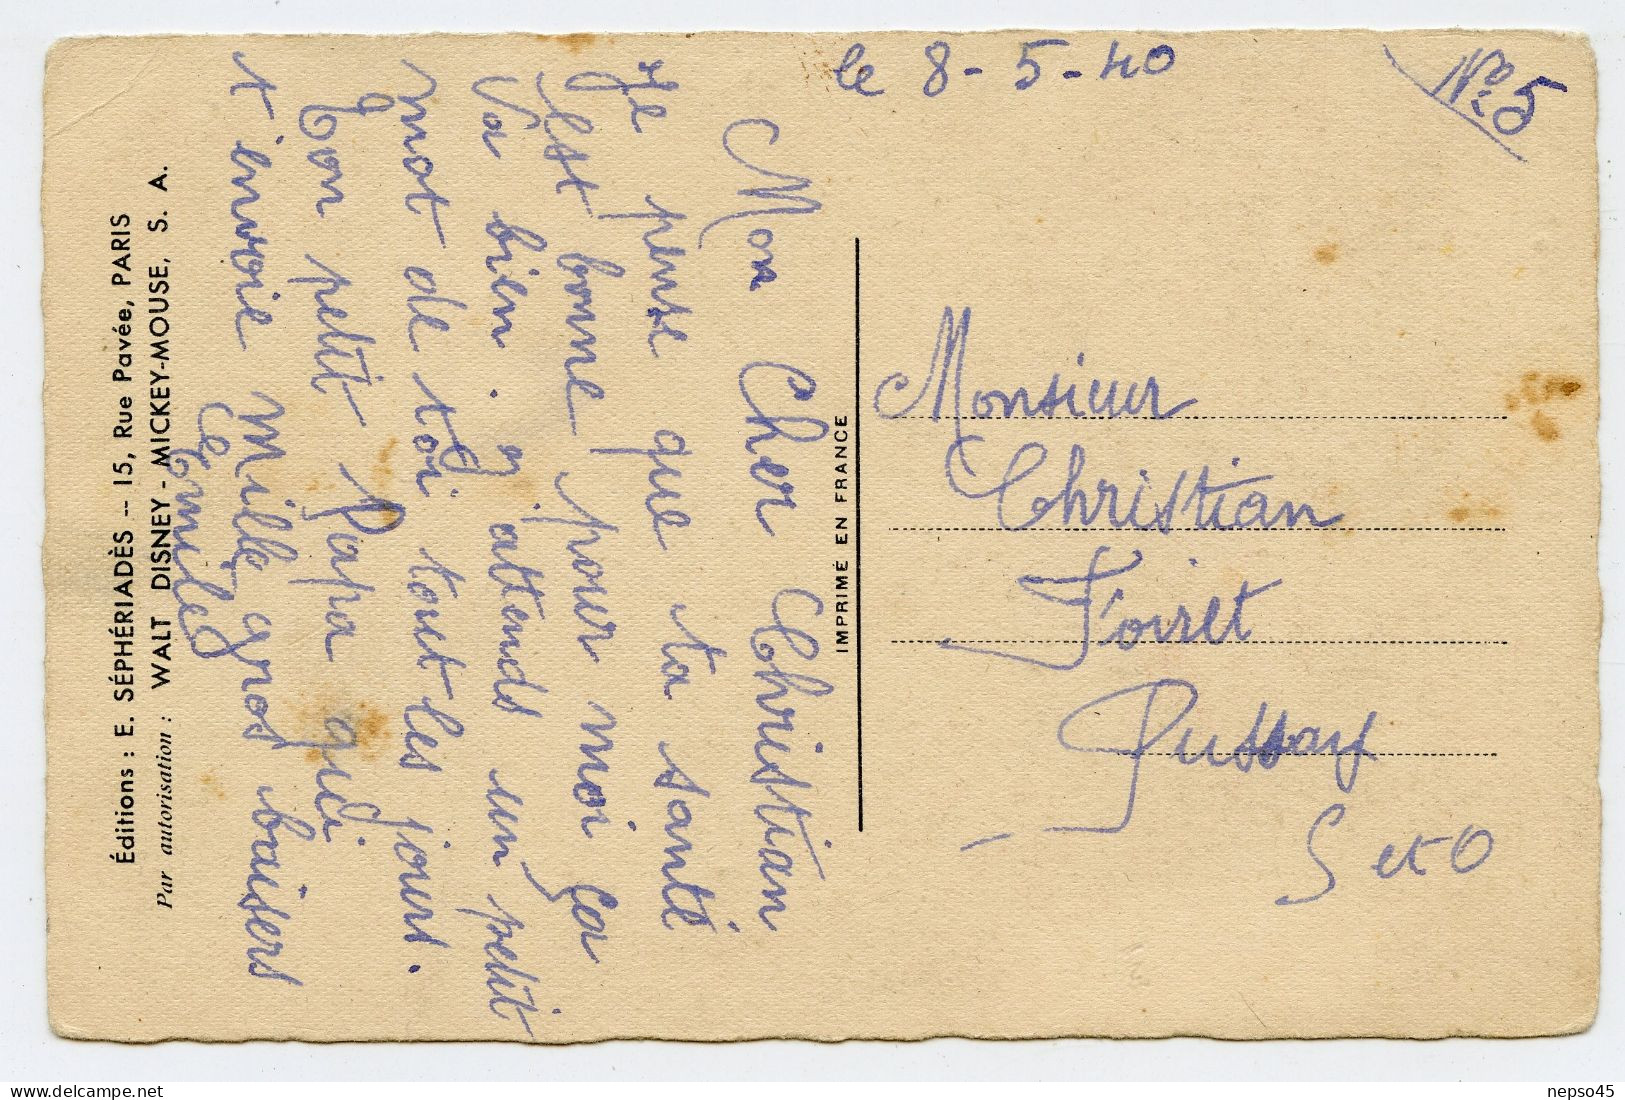 le 8-5-40
No 5
Mon Cher Christian
Je pense que ta santé
est bonne pour moi ça
va bien. j'attends un petit
mot de toi tout les jours.
Ton petit Papa qui
t'envoie mille gros baisers
Emile
Monsieur
Christian
Foiret
Pussay
S et O
IMPRIMÉ EN FRANCE
Éditions : E. SÉPHÉRIADÈS -- 15, Rue Pavée, PARIS
Par autorisation : WALT DISNEY - MICKEY-MOUSE, S. A.
nepso45